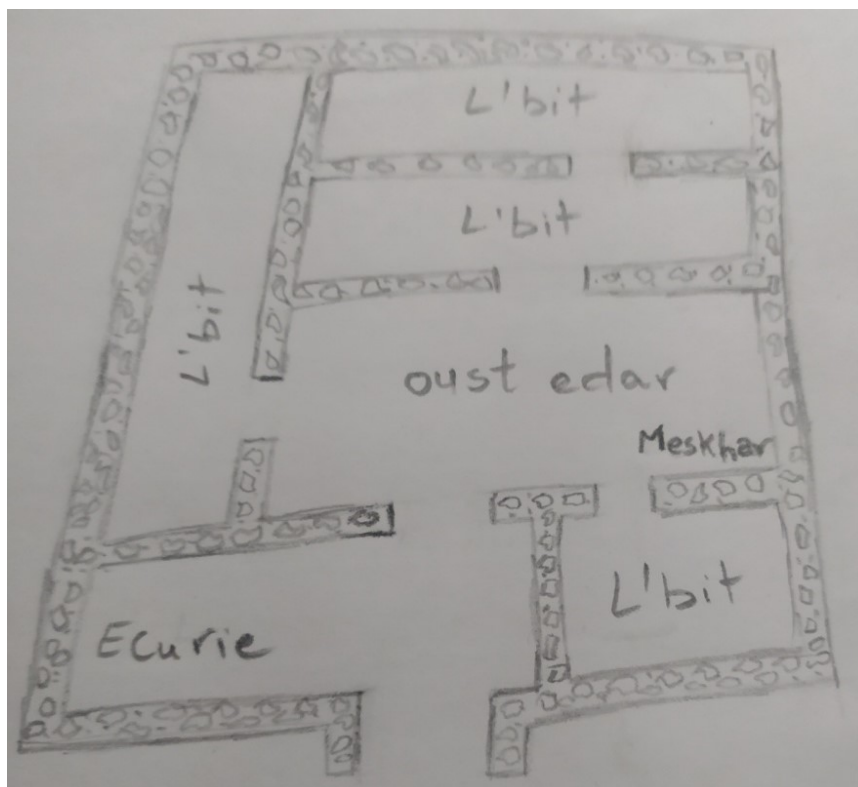 L'bit
L'bit
L'bit
oust edar
Meskhar
L'bit
Ecurie